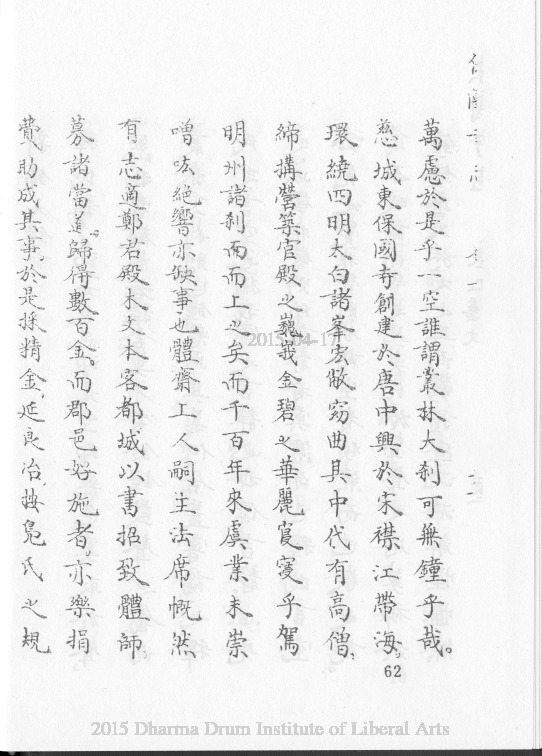 萬慮於是乎一空誰謂叢林大剎可無鐘乎哉。
慈城東保國寺創建於唐中興於宋襟江帶海，
環繞四明太白諸峯宏敞窈曲其中代有高僧，
締搆營築官殿之巍峩金碧之華麗寔寔乎駕
明州諸剎而而上之矣而千百年來虡業未崇
噌吰絕響亦缺事也體齋上人嗣主法席慨然
有志適鄭君殿木文本客都城以書招致體師，
募諸當道。歸得數百金。而郡邑好施者。亦樂捐
費助成其事，於是採精金，延良冶，按鳧氏之規
62
2015-04-17
2015 Dharma Drum Institute of Liberal Arts